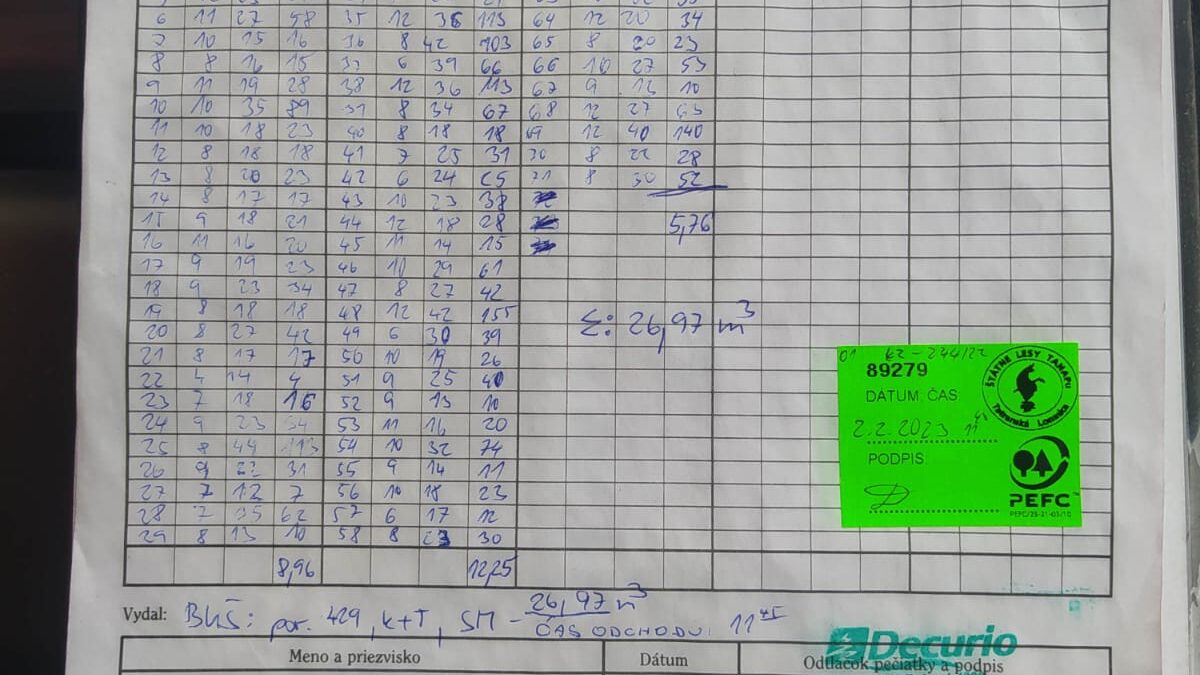 6 11 27 58 35 12 36 113 64 12 20 34
7 10 15 16 36 8 42 103 65 8 20 23
8 8 16 15 37 6 39 66 66 10 27 53
9 11 19 28 38 12 36 113 67 9 13 10
10 10 35 89 39 8 34 67 68 12 27 63
11 10 18 23 40 8 18 18 69 12 40 140
12 8 18 18 41 7 25 31 70 8 22 28
13 8 20 23 42 6 24 25 71 8 30 52
14 8 17 17 43 10 23 38
15 9 18 21 44 12 18 28 5,76
16 11 16 20 45 11 14 15
17 9 19 23 46 10 29 61
18 9 23 34 47 8 27 42
19 8 18 18 48 12 42 155
Σ: 26,97 m³
20 8 27 42 49 6 30 39
21 8 17 17 50 10 19 26
22 4 14 4 51 9 25 40
23 7 18 16 52 9 13 10
24 9 23 34 53 11 16 20
25 8 44 113 54 10 32 74
26 9 22 31 55 9 14 11
27 7 12 7 56 10 18 23
28 7 35 62 57 6 17 12
29 8 13 10 58 8 23 30
8,96 12,25
01 K2-244/22
89279
DÁTUM: ČAS
2.2.2023 11 45
PODPIS:
ŠTÁTNE LESY TANAPU
Tatranská Lomnica
PEFC™
PEFC/25-21-03/10
Vydal: BKŠ: por. 429, K+T, SM - 26,97 m³
ČAS ODCHODU: 11 45
Decurio
Meno a priezvisko Dátum Odtlačok pečiatky a podpis